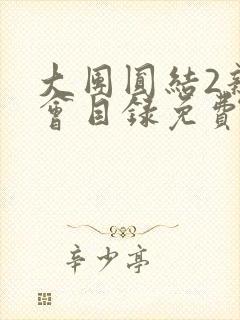 大团圆结2亲
会目录免费
辛少亭